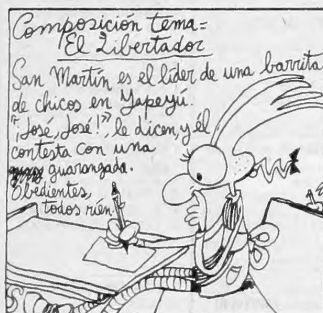 Composición tema=
El Libertador
San Martín es el líder de una barrita
de chicos en Yapeyú.
"¡José, José!", le dicen, y él
contesta con una
guarangada.
Obedientes,
todos ríen